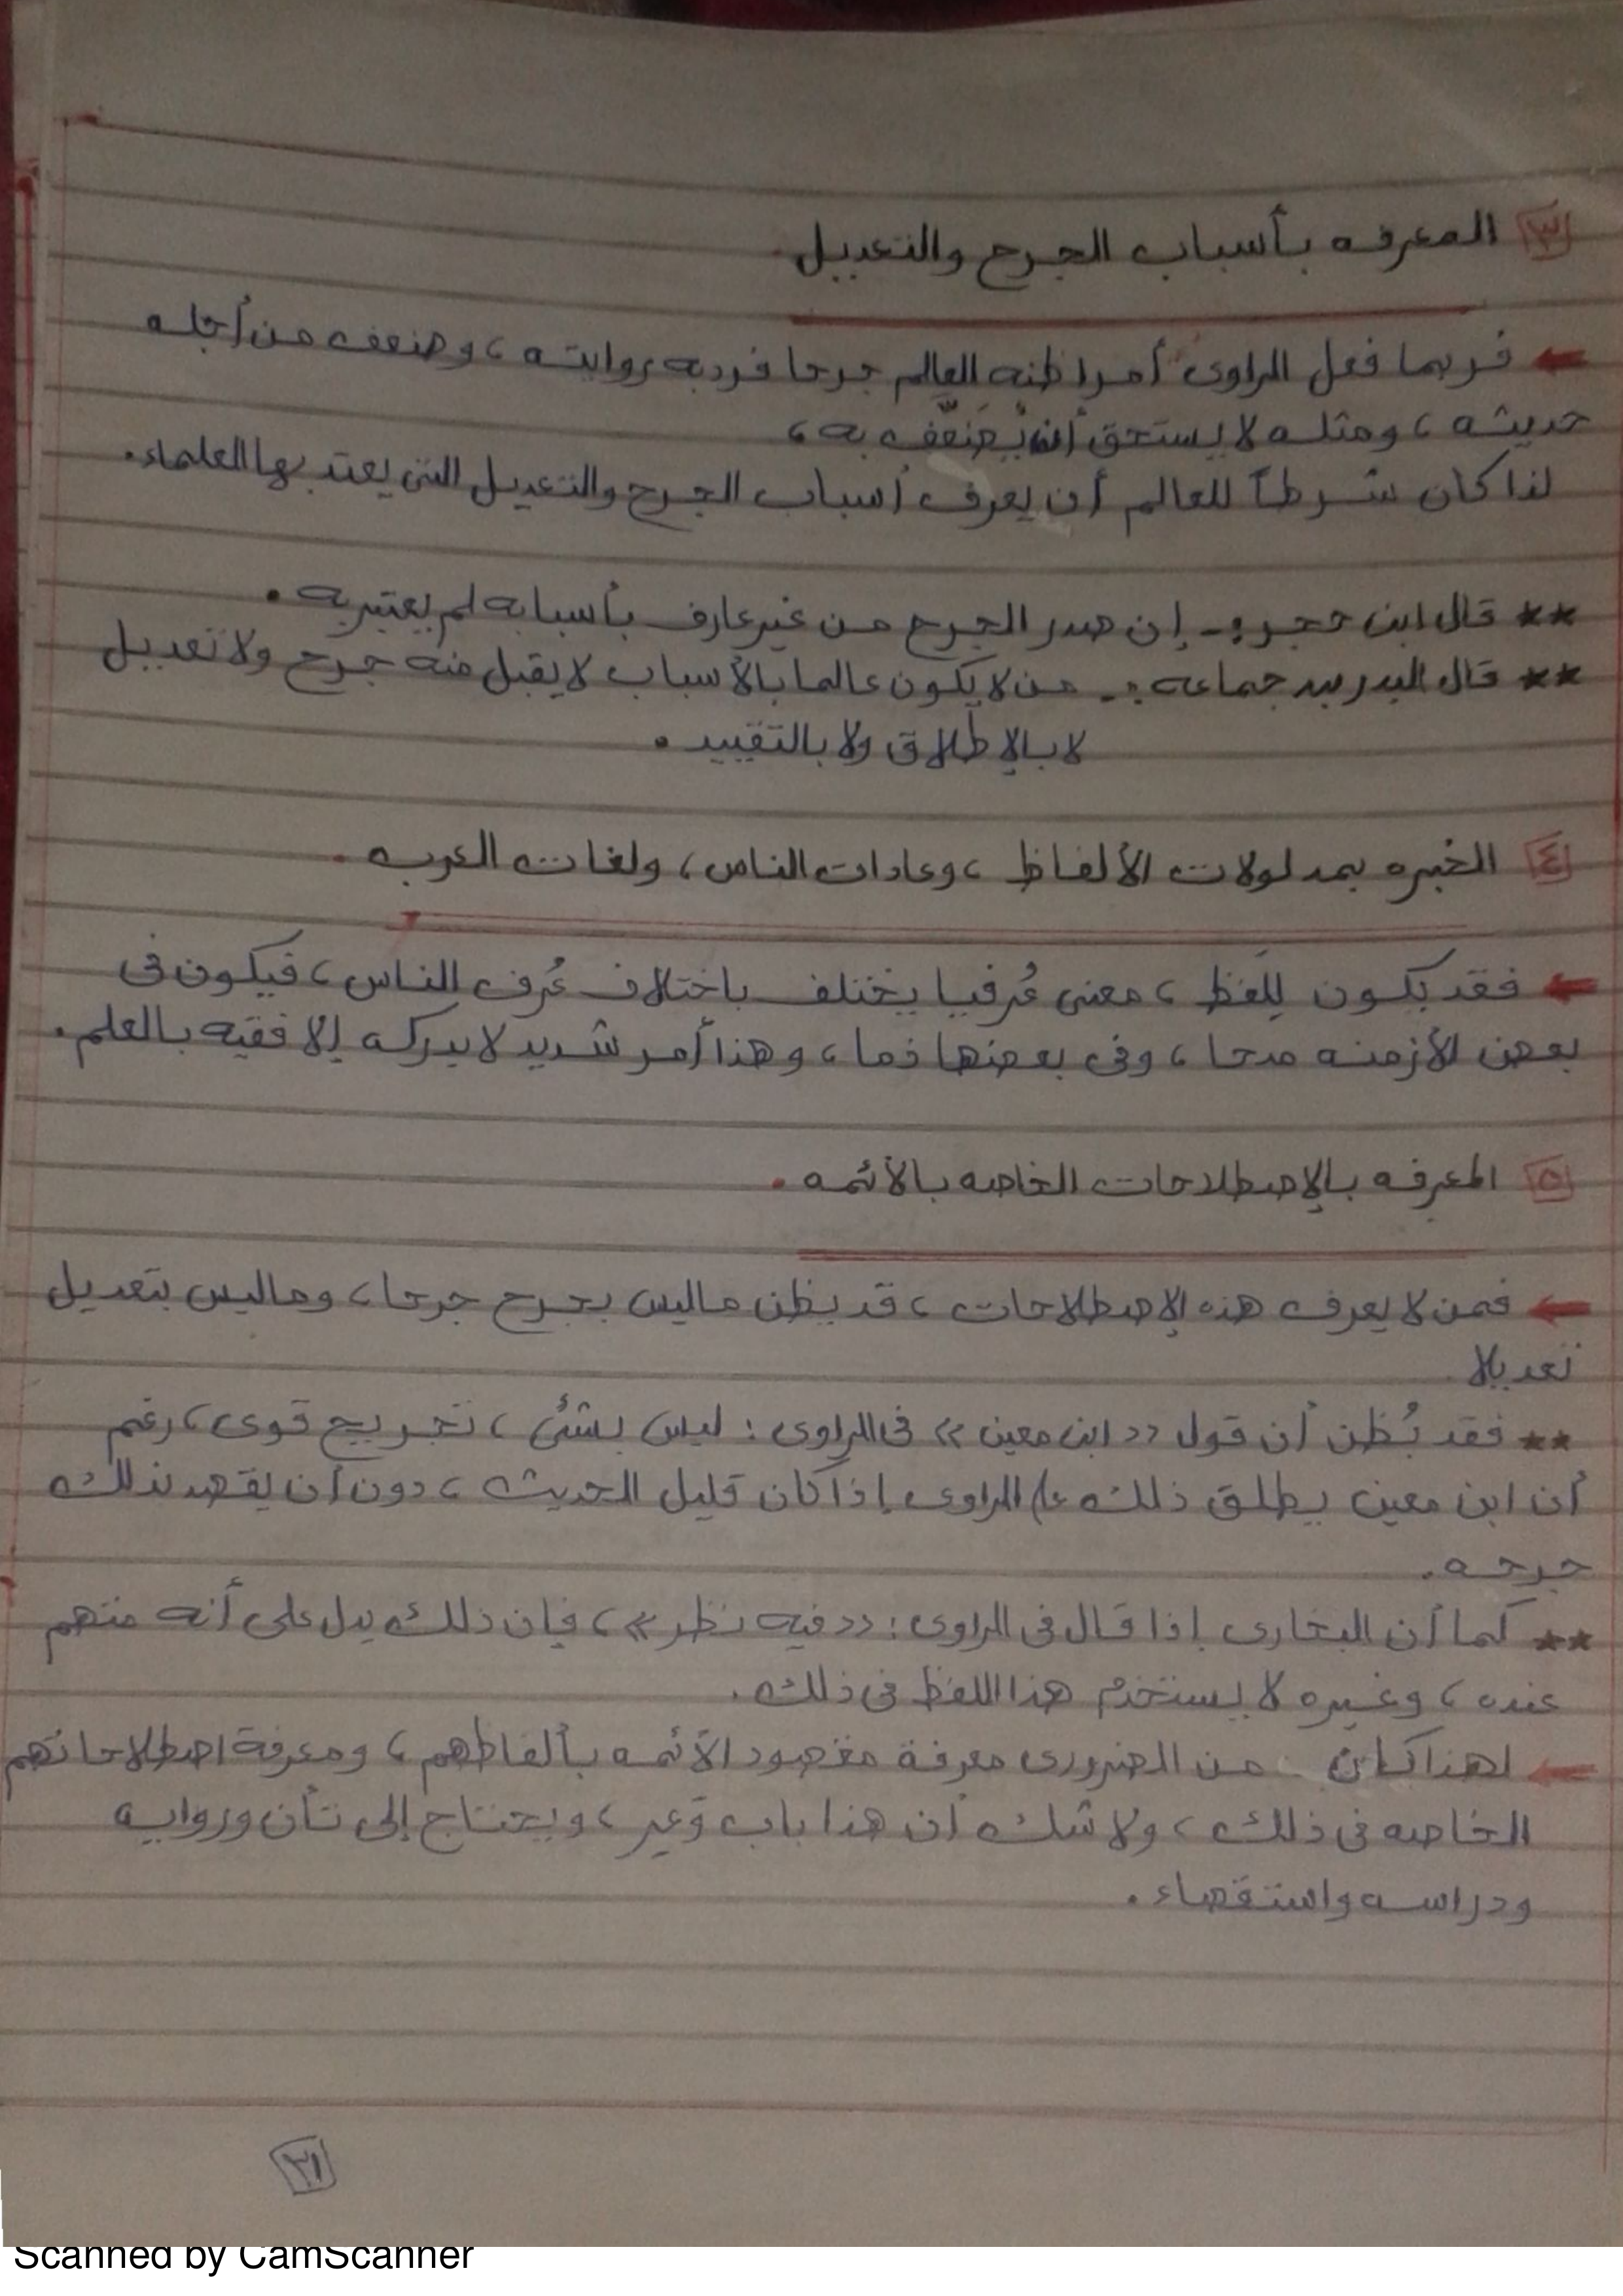 ٣ المعرفه بأسباب الجرح والتعديل.
← فربما فعل الراوى أمرا ظنه العالم جرحا فرد به روايته، وضعف من أجله
حديثه، ومثله لا يستحق أن يُضَعَّف به،
لذا كان شرطاً للعالم أن يعرف أسباب الجرح والتعديل التى يعتد بها العلماء.
** قال ابن حجر :- إن صدر الجرح من غير عارف بأسبابه لم يعتبر به.
** قال البدر بن جماعه :- من لا يكون عالما بالأسباب لا يقبل منه جرح ولا تعديل
لا بالإطلاق ولا بالتقييد.
٤ الخبره بمدلولات الألفاظ، وعادات الناس، ولغات العرب.
← فقد يكون للفظ، معنى عُرفيا يختلف باختلاف عُرف الناس، فيكون فى
بعض الأزمنه مدحا، وفى بعضها ذما، وهذا أمر شديد لا يدركه إلا فقيه بالعلم.
٥ المعرفه بالإصطلاحات الخاصه بالأئمه.
← فمن لا يعرف هذه الإصطلاحات، قد يظن ماليس بجرح جرحا، وماليس بتعديل
تعديلا
** فقد يُظن أن قول «ابن معين» فى الراوى: ليس بشئ، تجريح قوى، رغم
أن ابن معين يطلق ذلك على الراوى إذا كان قليل الحديث، دون أن يقصد بذلك
جرحه.
** كما أن البخارى إذا قال فى الراوى: «فيه نظر»، فإن ذلك يدل على أنه متهم
عنده، وغيره لا يستخدم هذا اللفظ فى ذلك.
← لهذا كان من الضرورى معرفة مقصود الأئمه بألفاظهم، ومعرفة اصطلاحاتهم
الخاصه فى ذلك، ولا شك أن هذا باب وَعِر، ويحتاج إلى تأن وروايه
ودراسه واستقصاء.
٢١
Scanned by CamScanner